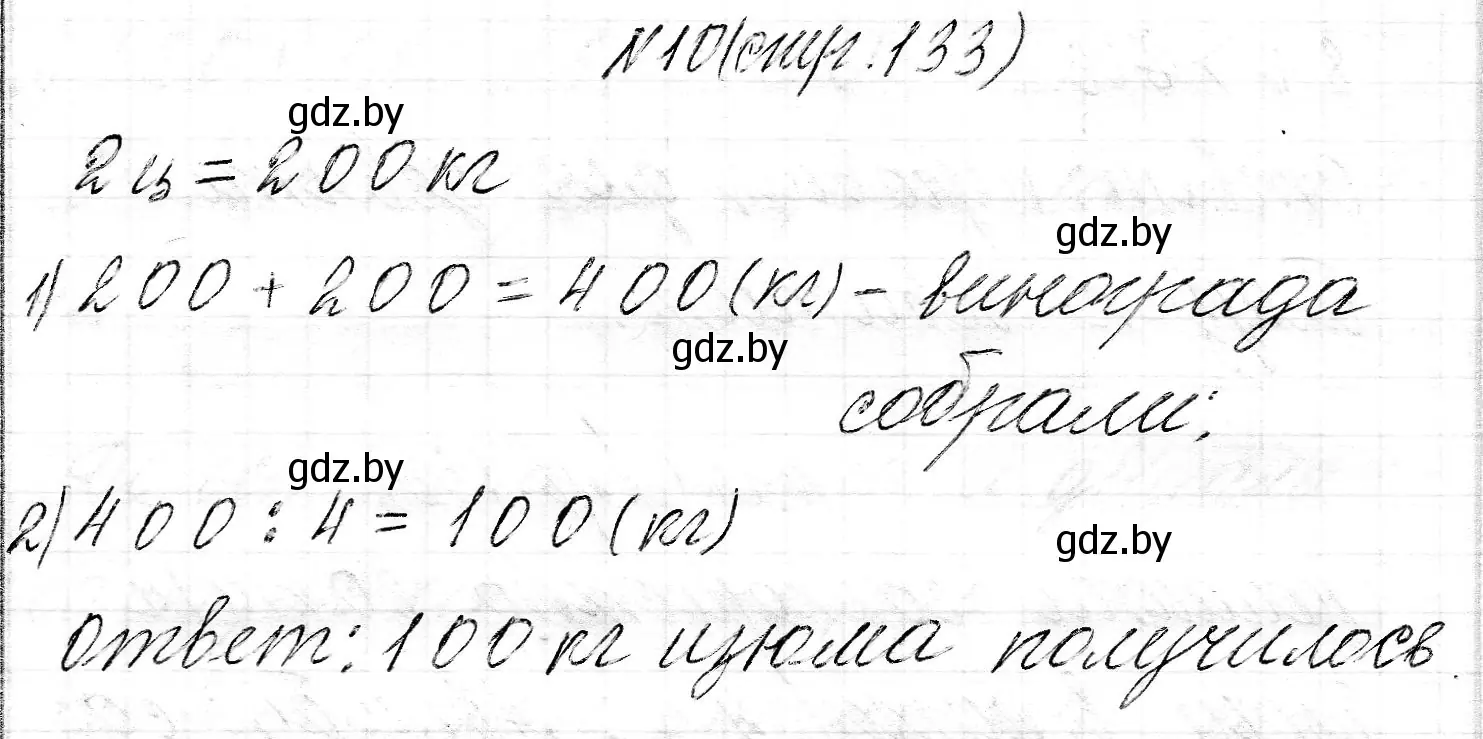 N10(стр.133)
gdz.by
2ц = 200кг
gdz.by
1) 200 + 200 = 400(кг) - винограда
gdz.by
собрали;
gdz.by
2) 400 : 4 = 100(кг)
gdz.by
ответ: 100кг изюма получилось.